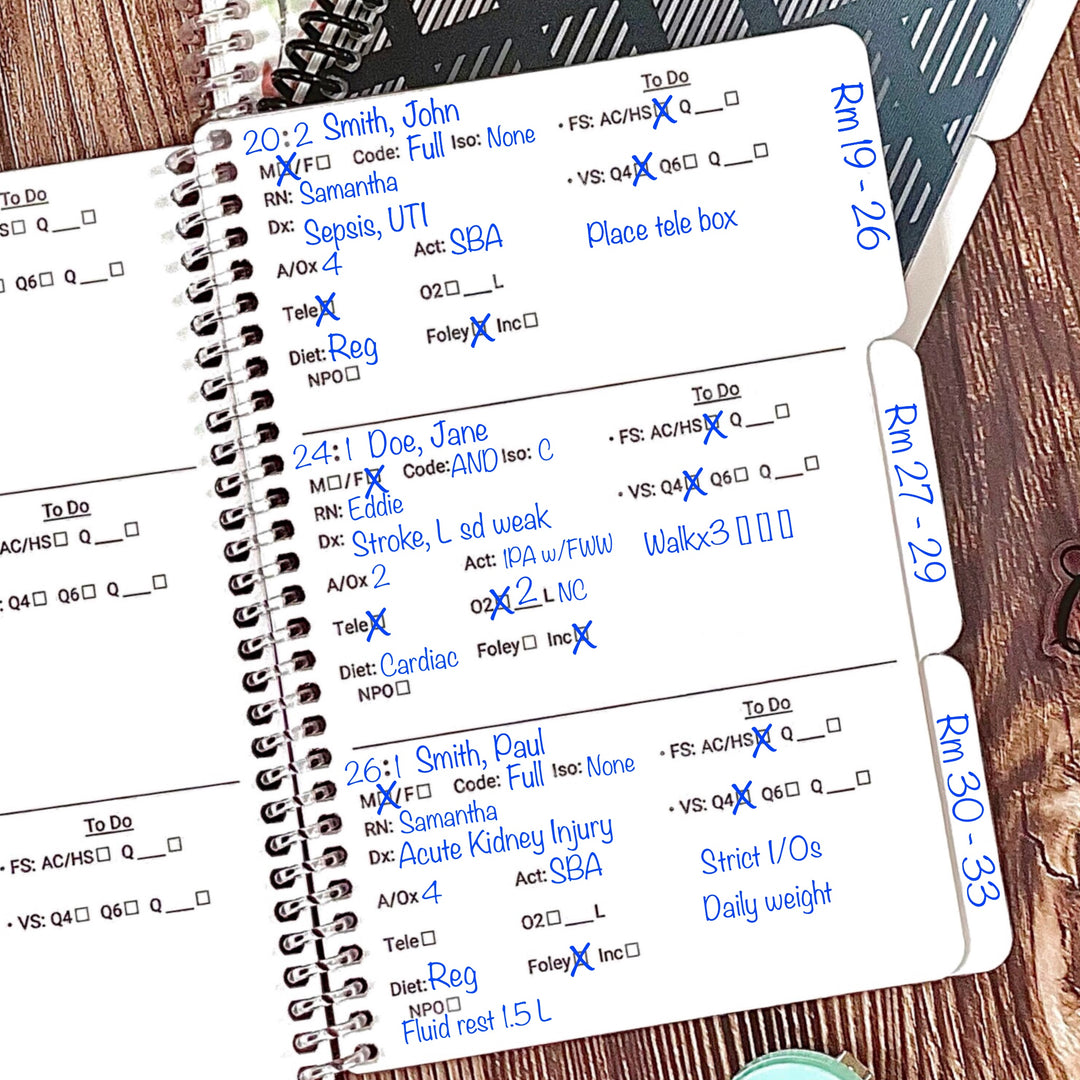 To Do
S☐ Q___☐
Q6☐ Q___☐
To Do
AC/HS☐ Q___☐
: Q4☐ Q6☐ Q___☐
To Do
• FS: AC/HS☐ Q___☐
• VS: Q4☐ Q6☐ Q___☐
20:2 Smith, John
M☒/F☐ Code: Full Iso: None
RN: Samantha
Dx: Sepsis, UTI
A/Ox 4 Act: SBA
Tele☒ O2☐___L
Diet: Reg Foley☒ Inc☐
NPO☐
To Do
• FS: AC/HS☒ Q___☐
• VS: Q4☒ Q6☐ Q___☐
Place tele box
24:1 Doe, Jane
M☐/F☒ Code: AND Iso: C
RN: Eddie
Dx: Stroke, L sd weak
A/Ox 2 Act: 1PA w/FWW
Tele☒ O2☒ 2 L NC
Diet: Cardiac Foley☐ Inc☒
NPO☐
To Do
• FS: AC/HS☒ Q___☐
• VS: Q4☒ Q6☐ Q___☐
Walkx3 ▯ ▯ ▯
26:1 Smith, Paul
M☒/F☐ Code: Full Iso: None
RN: Samantha
Dx: Acute Kidney Injury
A/Ox 4 Act: SBA
Tele☐ O2☐___L
Diet: Reg Foley☒ Inc☐
NPO☐
Fluid rest 1.5 L
To Do
• FS: AC/HS☒ Q___☐
• VS: Q4☒ Q6☐ Q___☐
Strict I/Os
Daily weight
Rm 19 - 26
Rm 27 - 29
Rm 30 - 33